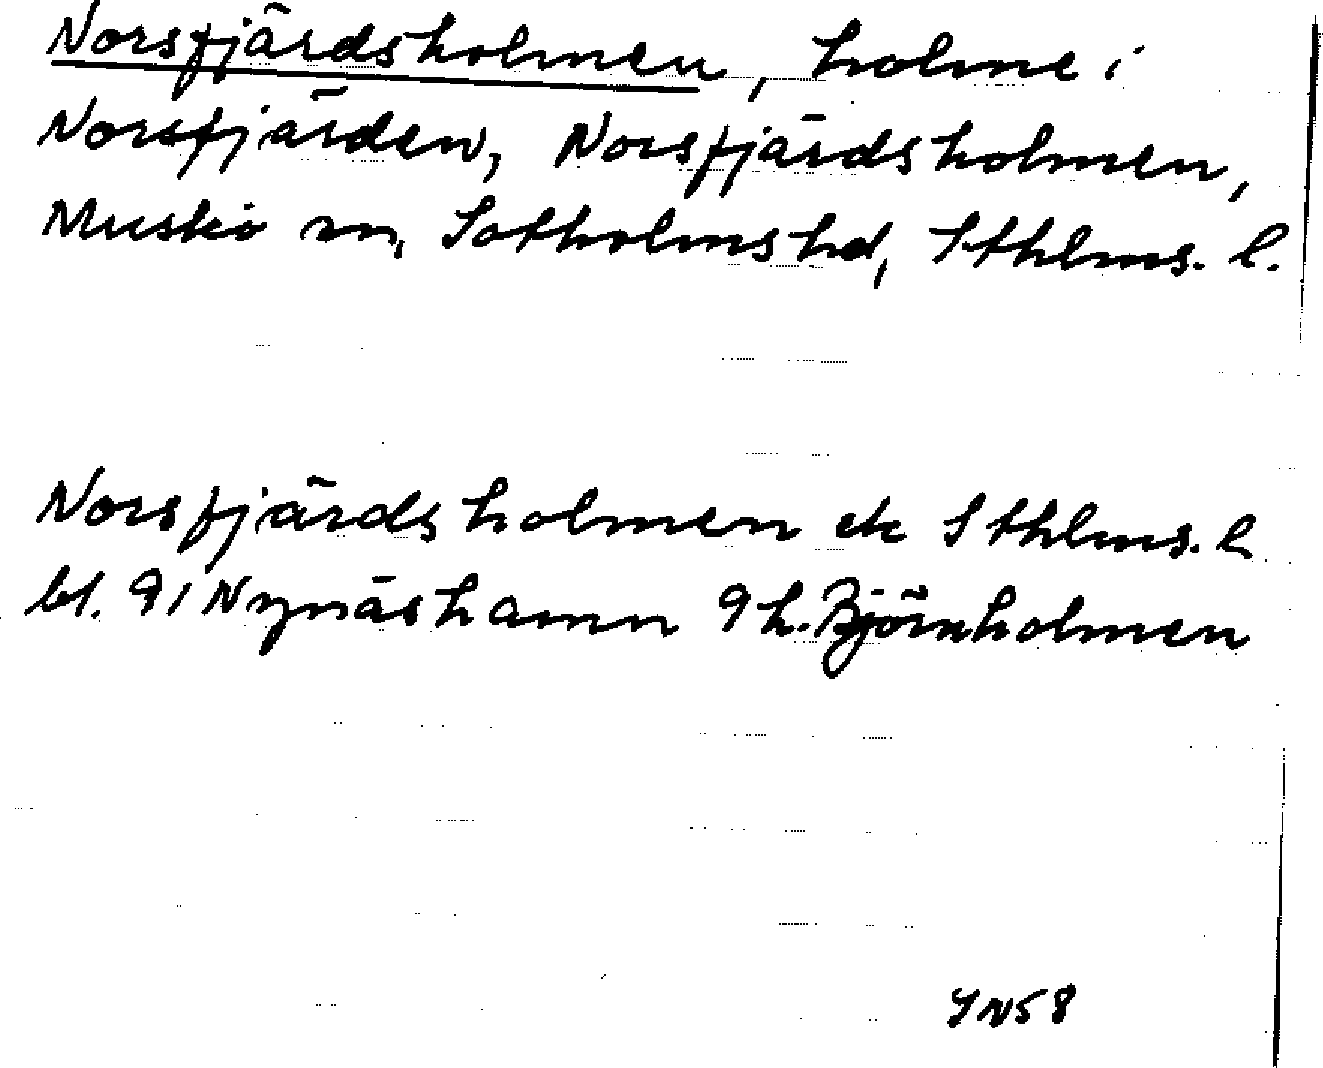 Norsfjärdsholmen, holme i
Norsfjärden, Norsfjärdsholmen,
Muskö sn, Sotholms hd, Sthlms. l.
Norsfjärdsholmen ek Sthlms. l
bl. 91 Nynäshamn 9 h. Björnholmen
YN58